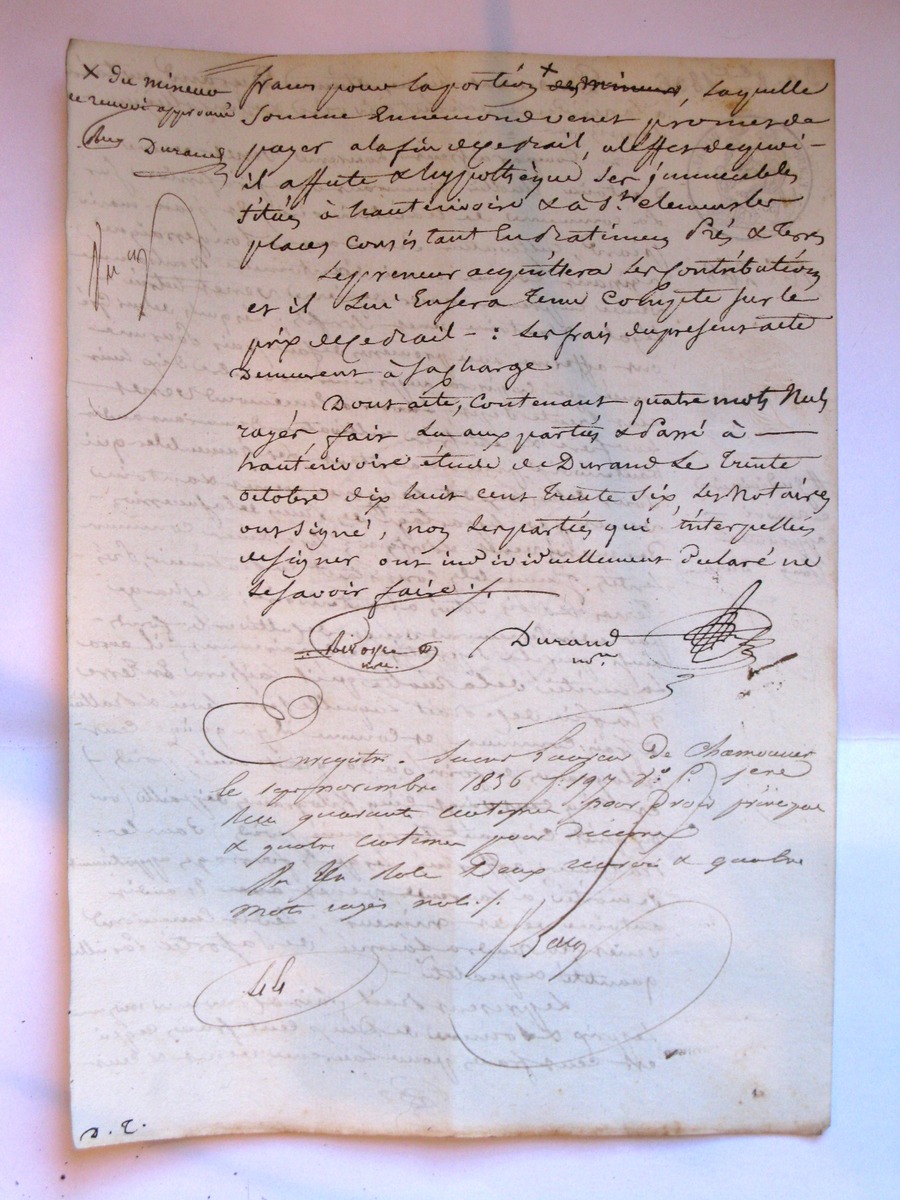 x du mineur
ce renvoi approuvé
Durand
francs pour la portion x des mineurs, laquelle
somme Ennemond venet promet de
payer a la fin de ce bail, a l'effet de quoi -
il affecte & hypothèque ses immeubles
situés à hauterivoire & à St clement les
places consistant En Batimens Prés & Terres
Le preneur acquittera les contributions
et il lui En sera Tenu Compte sur le
prix de ce bail - : les frais du present acte
Demeurent à sa charge
Dont acte, contenant quatre mots Nuls
rayés fait Lu aux parties & Passé à —
hauterivoire étude de Durand Le Trente
octobre dix huit cent trente six Les Notaires
ont signé, non les parties qui interpellés
de signer ont individuellement Déclaré ne
le savoir faire ./.
nre.
Durand
nre
Enregistré a De
le 1er novembre 1836 f. 197
quarante centimes pour Droit principal
& quatre centimes pour Décime
Un Role Deux renvois & quatre
mots rayés nuls ./.
D. T.